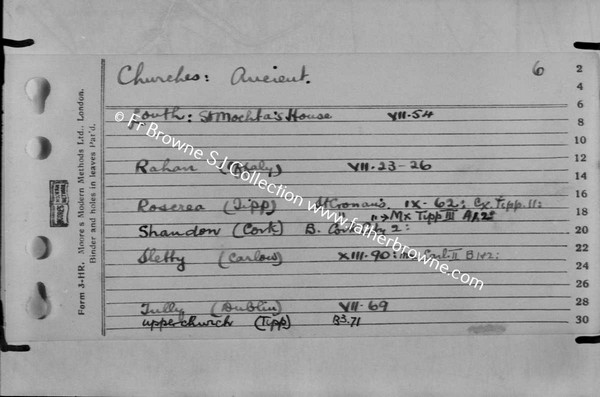 Churches: Ancient. 6
Louth: St Mochta's House VII-54
Rahan (Offaly) VII-23-26
Roscrea (Tipp) St Cronan's, IX-62: Cx Tipp. II:
" " → Mx Tipp III
Shandon (Cork) B. 2:
Sletty (Carlow) XIII-90: Carl-II B
Tully (Dublin) VII-69
upperchurch (Tipp) B3.71
Form 3-HR. Moore's Modern Methods Ltd., London.
Binder and holes in leaves Pat'd.
2
4
6
8
10
12
14
16
18
20
22
24
26
28
30
© Fr Browne S.J. Collection www.fatherbrowne.com